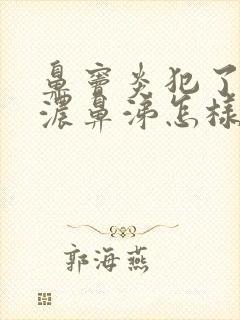 鼻窦炎犯了
浓鼻涕怎样
郭海燕